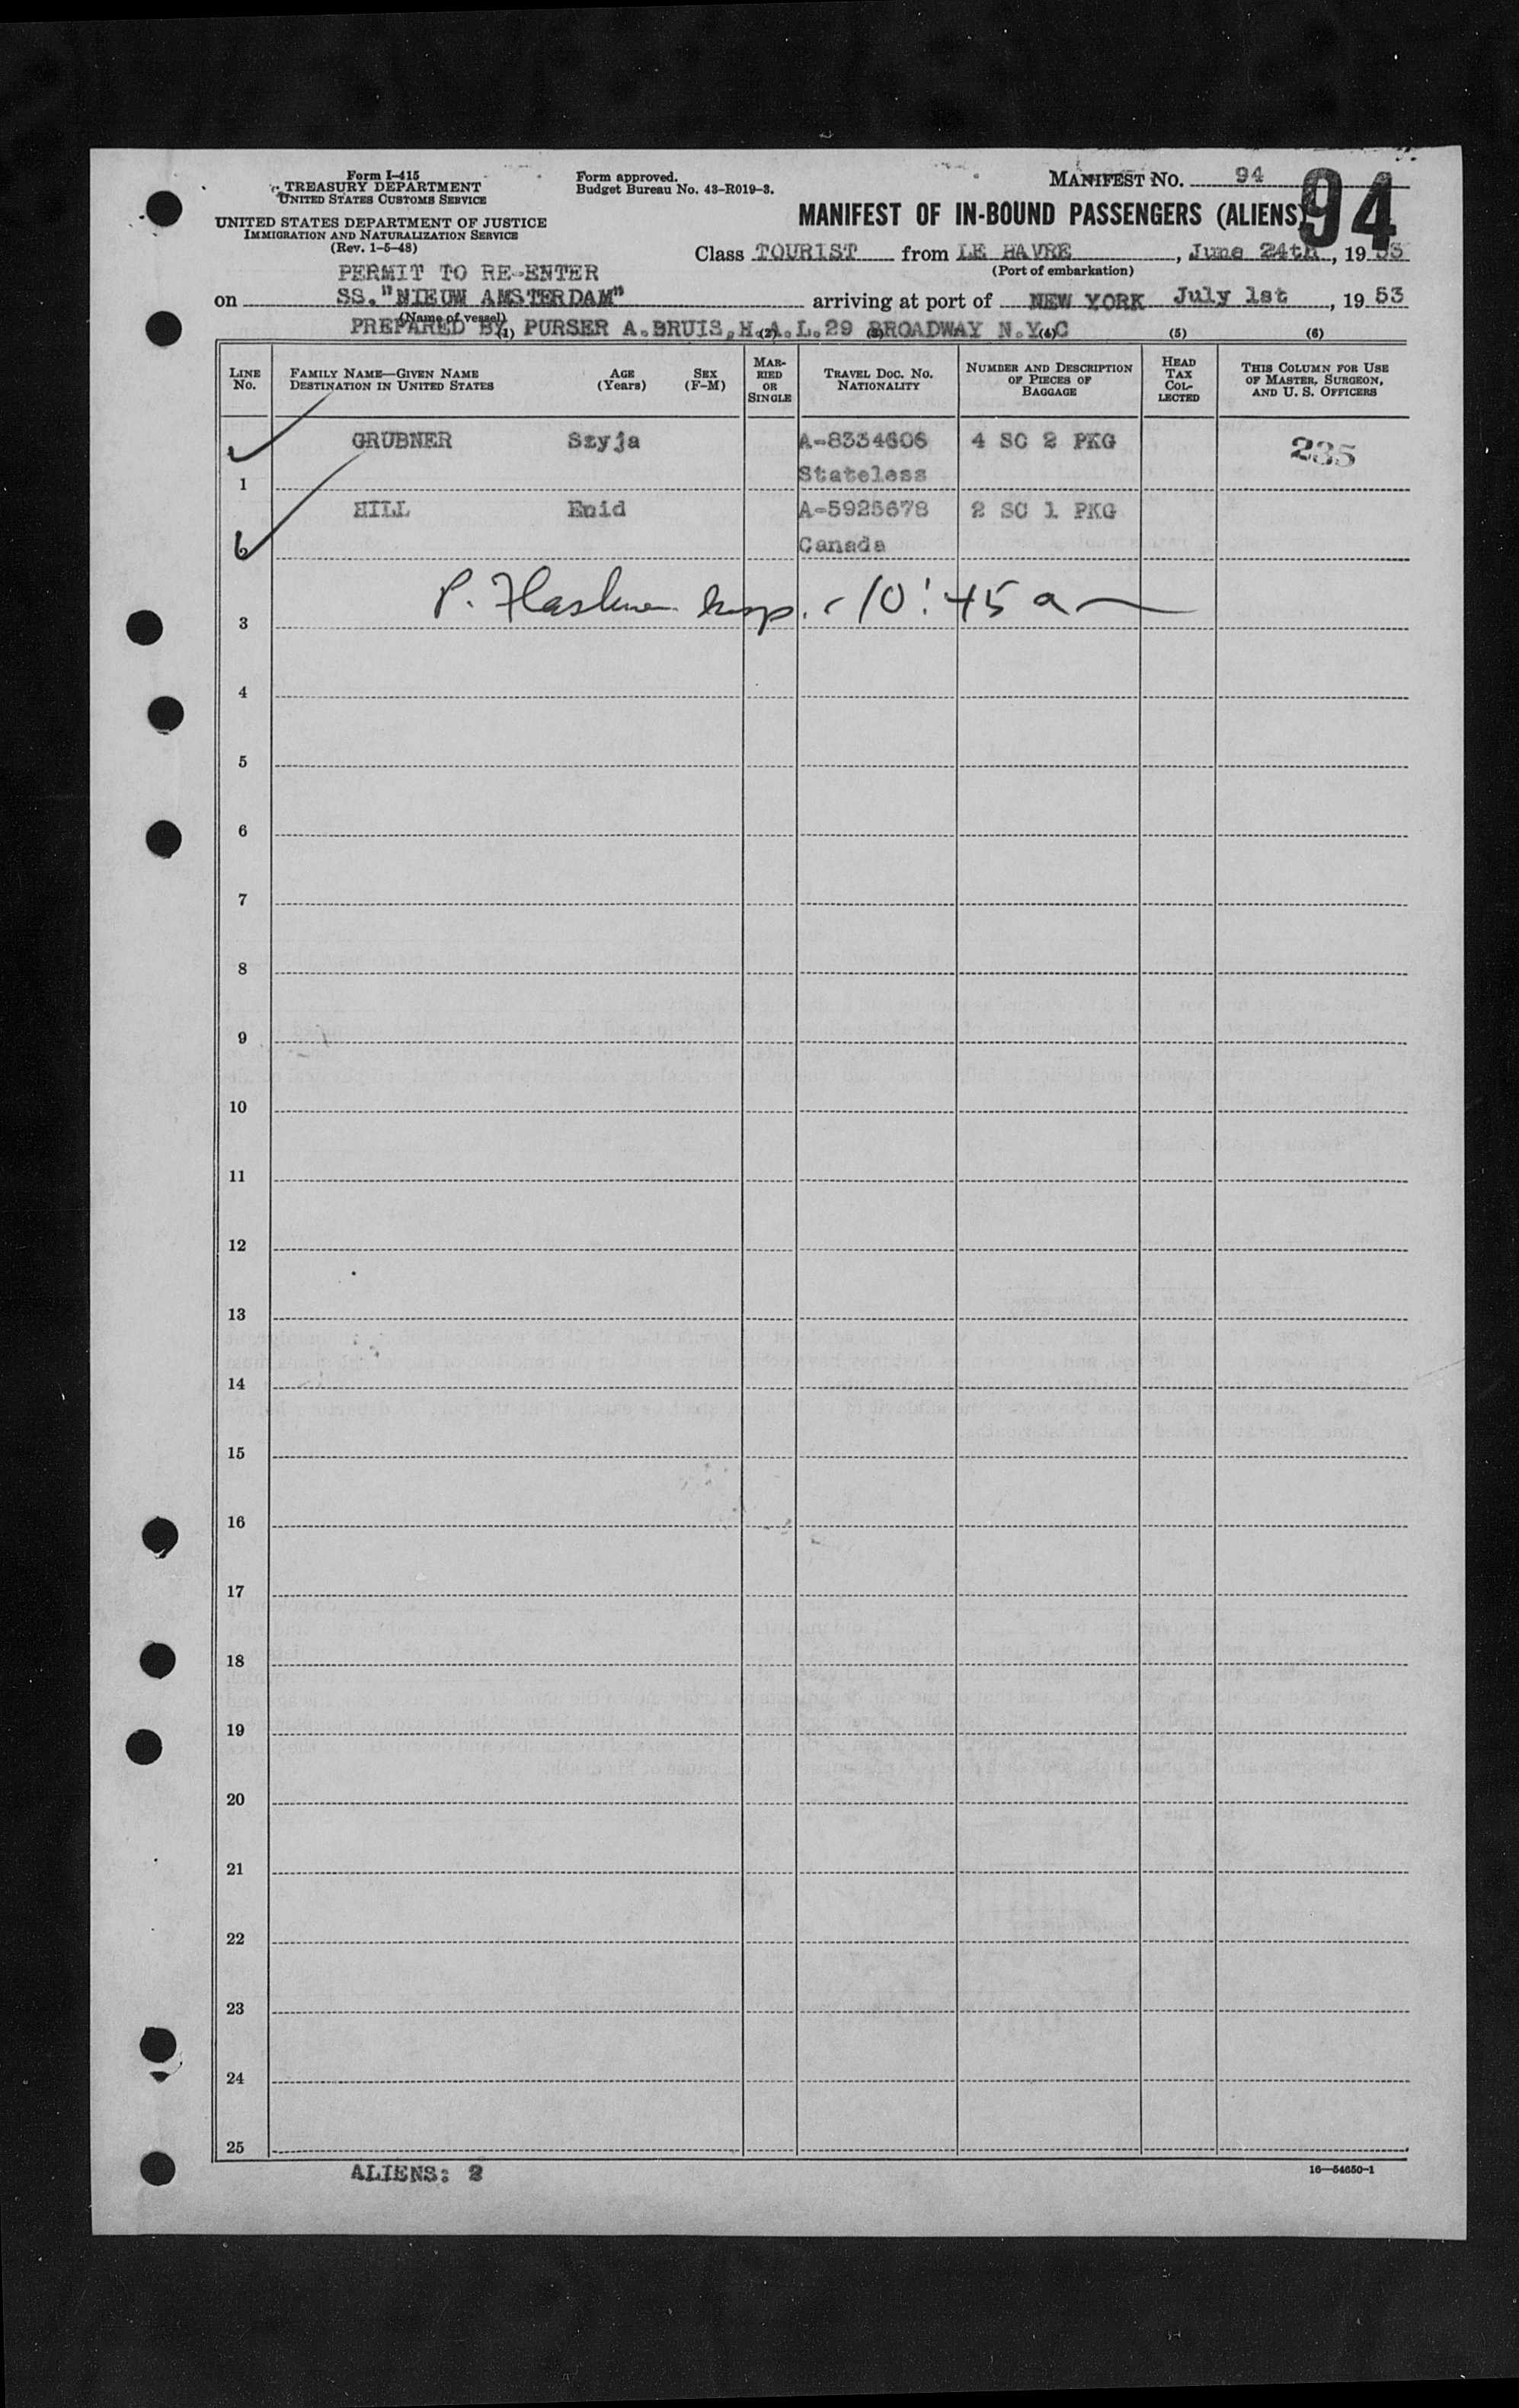 Form I-415
TREASURY DEPARTMENT
UNITED STATES CUSTOMS SERVICE
UNITED STATES DEPARTMENT OF JUSTICE
IMMIGRATION AND NATURALIZATION SERVICE
(Rev. 1-5-48)
Form approved.
Budget Bureau No. 43-R019-3.
MANIFEST NO. 94
94
MANIFEST OF IN-BOUND PASSENGERS (ALIENS)
Class TOURIST from LE HAVRE, June 24th, 1953
(Port of embarkation)
PERMIT TO RE-ENTER
on SS."NIEUW AMSTERDAM" arriving at port of NEW YORK July 1st, 1953
(Name of vessel)
PREPARED BY PURSER A.BRUIS, H.A.L. 29 BROADWAY N.Y.C
(1) (2) (3) (4) (5) (6)
LINE No. FAMILY NAME—GIVEN NAME DESTINATION IN UNITED STATES AGE (Years) SEX (F-M) MARRIED OR SINGLE TRAVEL DOC. NO. NATIONALITY NUMBER AND DESCRIPTION OF PIECES OF BAGGAGE HEAD TAX COLLECTED THIS COLUMN FOR USE OF MASTER, SURGEON, AND U. S. OFFICERS
GRUBNER Szyja A-8334606 4 SC 2 PKG 235
1 Stateless
HILL Enid A-5925678 2 SC 1 PKG
Canada
P. Insp. 10:45 a
3
4
5
6
7
8
9
10
11
12
13
14
15
16
17
18
19
20
21
22
23
24
25
ALIENS: 2
16—54650-1